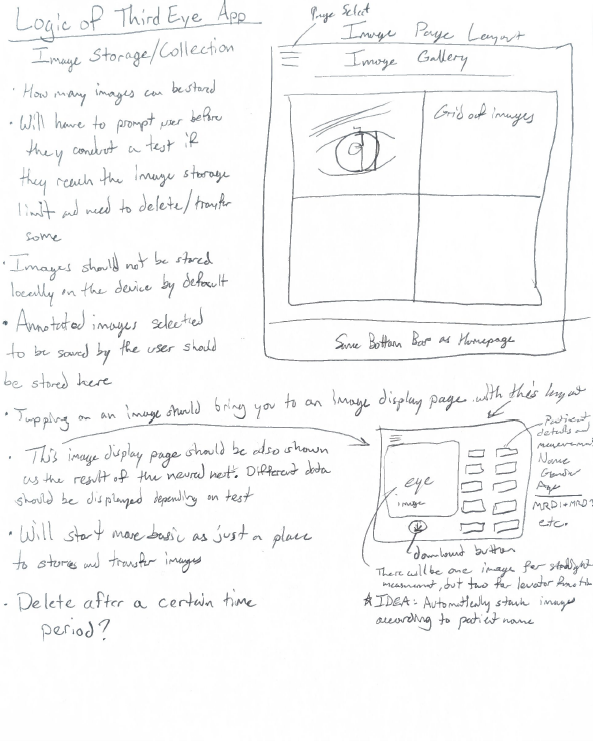 Logic of Third Eye App
Image Storage/Collection
· How many images can be stored
· Will have to prompt user before
they conduct a test if
they reach the image storage
limit and need to delete/transfer
some
· Images should not be stored
locally on the device by default
· Annotated images selected
to be saved by the user should
be stored here
Page Select
Image Page Layout
Image Gallery
Grid of images
Same Bottom Bar as Homepage
· Tapping on an image should bring you to an image display page with this layout
· This image display page should be also shown
as the result of the neural net. Different data
should be displayed depending on test
· Will start more basic as just a place
to store and transfer images
· Delete after a certain time
period?
eye
image
Patient
details and
measurements
Name
Gender
Age
MRD1+MRD2
etc.
download button
There will be one image for straight
measurement, but two for levator function
★ IDEA: Automatically stack images
according to patient name